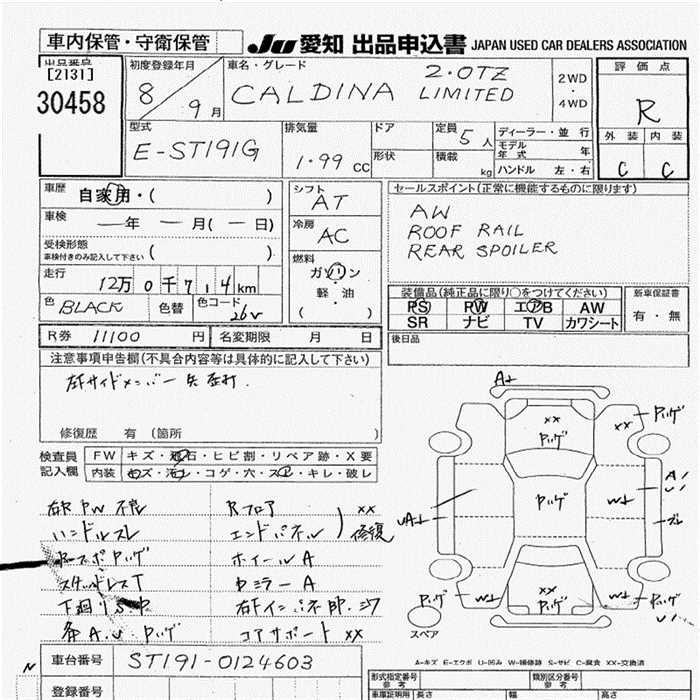 車内保管・守衛保管
Ju 愛知 出品申込書 JAPAN USED CAR DEALERS ASSOCIATION
出品番号
[2131]
30458
初度登録年月
8 / 9 月
車名・グレード
2.0TZ
CALDINA LIMITED
2WD
・
4WD
評価点
R
外装 内装
C C
型式
E-ST191G
排気量
1.99 CC
ドア
形状
定員 5 人
積載 kg
ディーラー・並行
モデル年式 年
ハンドル 左・右
車歴
自家用・( )
車検
― 年 ― 月(― 日)
受検形態
車検付きのみ記入して下さい ( )
走行
12万0千714km
色 BLACK 色替 色コード 26V
シフト
AT
冷房
AC
燃料
ガソリン
軽・油
( )
セールスポイント(正常に機能するものに限ります)
AW
ROOF RAIL
REAR SPOILER
装備品(純正品に限り○をつけてください)
PS PW エアB AW
SR ナビ TV カワシート
新車保証書
有・無
後日品
R券 11100 円 名変期限 月 日
注意事項申告欄(不具合内容等は具体的に記入して下さい)
修復歴 有 (箇所 )
検査員
記入欄
FW キズ・飛石・ヒビ割・リペア跡・X要
内装 キズ・汚れ・コゲ・穴・スレ・キレ・破レ
右R PW 不良
ハンドルスレ
スタッドレスT
Rフロア
エンドパネル ) xx 修復
ホイールA
ミラーA
コアサポート xx
A↓
xx
xx
W↓
W↓
xx
W↓
W↓
スペア
A=キズ E=エクボ U=凹み W=補修跡 S=サビ C=腐食 XX=交換済
車台番号 ST191-0124603
登録番号
形式指定番号
参考
類別区分番号
参考
車庫証明用 長さ 幅 高さ